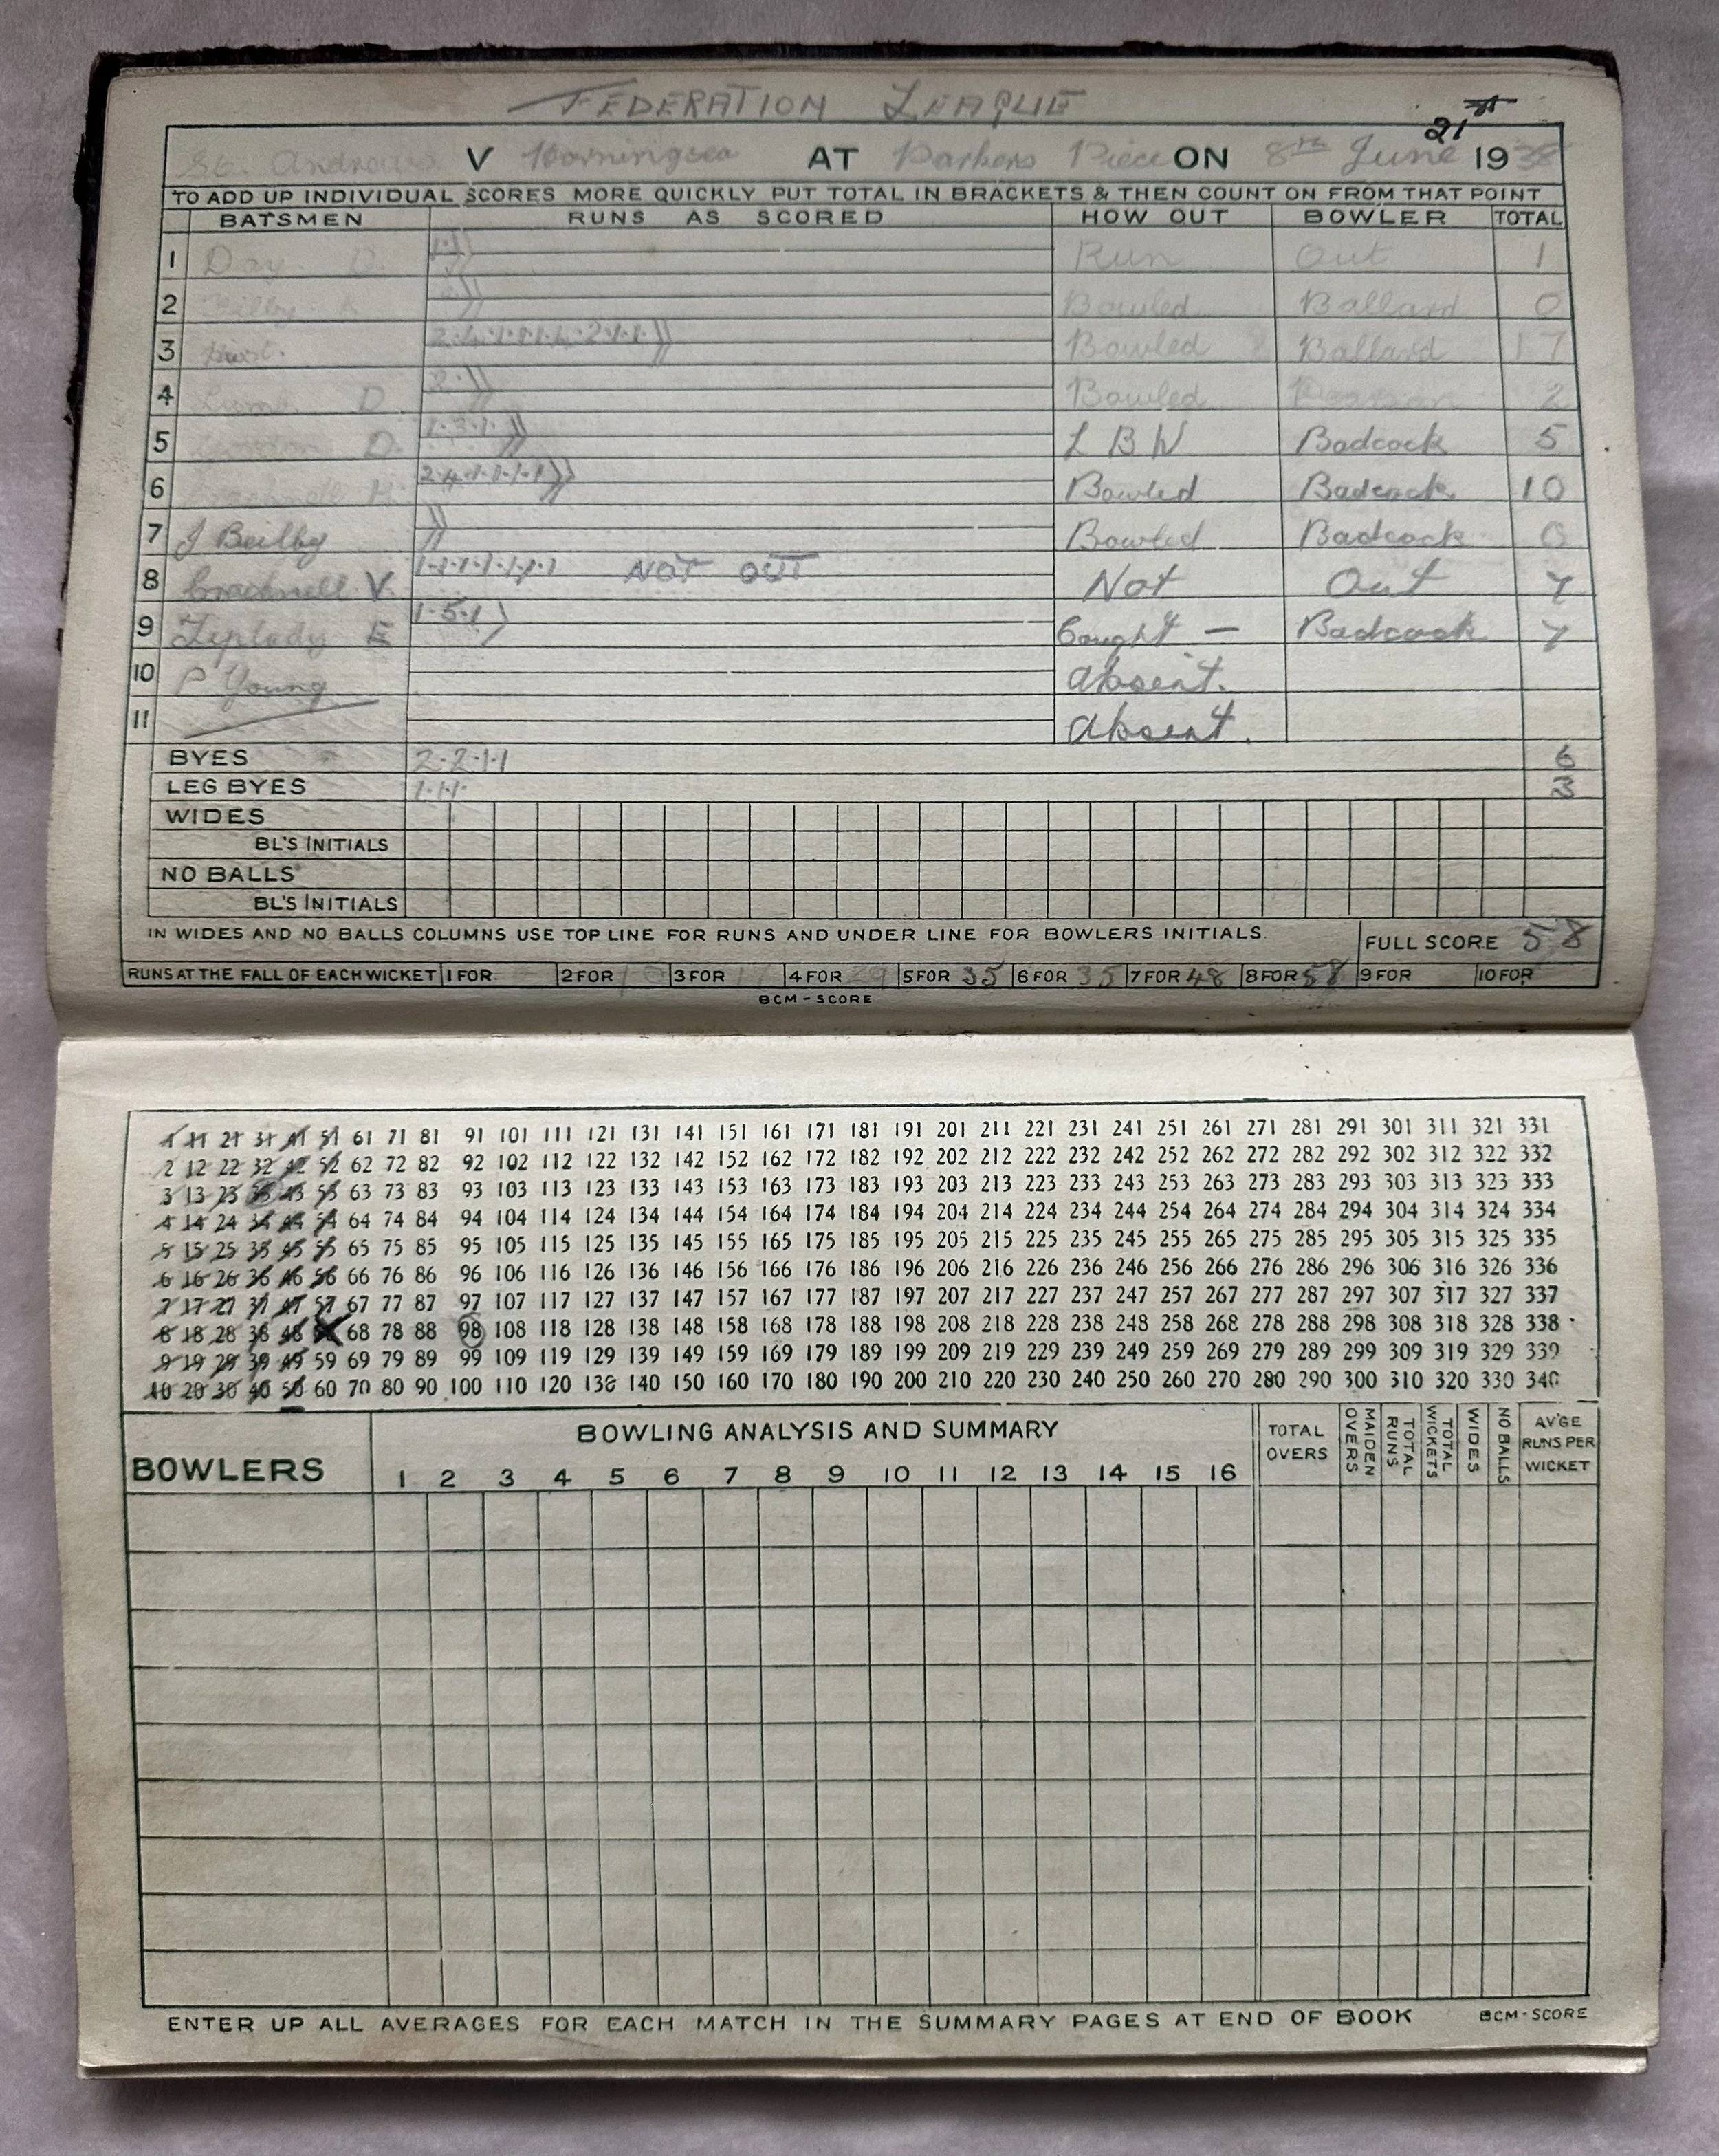 FEDERATION LEAGUE
21st
St. Andrews V Horningsea AT Parkers Piece ON 8th June 1938
TO ADD UP INDIVIDUAL SCORES MORE QUICKLY PUT TOTAL IN BRACKETS & THEN COUNT ON FROM THAT POINT
BATSMEN RUNS AS SCORED HOW OUT BOWLER TOTAL
1 Day D. 1 Run Out 1
2 Bowled Ballard 0
3 Bowled Ballard 17
4 D. 2 Bowled 2
5 D. 1·3·1 L B W Badcock 5
6 H. 2·4·1·1·1·1 Bowled Badcock 10
7 J Beilby Bowled Badcock 0
8 Cracknell V. 1·1·1·1·1·1·1 NOT OUT Not Out 7
9 Leplady E 1·5·1 Caught — Badcock 7
10 P Young absent.
11 absent.
BYES 2·2·1·1 6
LEG BYES 1·1·1 3
WIDES
BL'S INITIALS
NO BALLS
BL'S INITIALS
IN WIDES AND NO BALLS COLUMNS USE TOP LINE FOR RUNS AND UNDER LINE FOR BOWLERS INITIALS. FULL SCORE 58
RUNS AT THE FALL OF EACH WICKET 1 FOR 2 FOR 3 FOR 4 FOR 29 5 FOR 35 6 FOR 35 7 FOR 48 8 FOR 58 9 FOR 10 FOR
BCM - SCORE
1 11 21 31 41 51 61 71 81 91 101 111 121 131 141 151 161 171 181 191 201 211 221 231 241 251 261 271 281 291 301 311 321 331
2 12 22 32 42 52 62 72 82 92 102 112 122 132 142 152 162 172 182 192 202 212 222 232 242 252 262 272 282 292 302 312 322 332
3 13 23 33 43 53 63 73 83 93 103 113 123 133 143 153 163 173 183 193 203 213 223 233 243 253 263 273 283 293 303 313 323 333
4 14 24 34 44 54 64 74 84 94 104 114 124 134 144 154 164 174 184 194 204 214 224 234 244 254 264 274 284 294 304 314 324 334
5 15 25 35 45 55 65 75 85 95 105 115 125 135 145 155 165 175 185 195 205 215 225 235 245 255 265 275 285 295 305 315 325 335
6 16 26 36 46 56 66 76 86 96 106 116 126 136 146 156 166 176 186 196 206 216 226 236 246 256 266 276 286 296 306 316 326 336
7 17 27 37 47 57 67 77 87 97 107 117 127 137 147 157 167 177 187 197 207 217 227 237 247 257 267 277 287 297 307 317 327 337
8 18 28 38 48 58 68 78 88 98 108 118 128 138 148 158 168 178 188 198 208 218 228 238 248 258 268 278 288 298 308 318 328 338
9 19 29 39 49 59 69 79 89 99 109 119 129 139 149 159 169 179 189 199 209 219 229 239 249 259 269 279 289 299 309 319 329 339
10 20 30 40 50 60 70 80 90 100 110 120 130 140 150 160 170 180 190 200 210 220 230 240 250 260 270 280 290 300 310 320 330 340
BOWLERS BOWLING ANALYSIS AND SUMMARY TOTAL OVERS MAIDEN OVERS TOTAL RUNS TOTAL WICKETS WIDES NO BALLS AV'GE RUNS PER WICKET
1 2 3 4 5 6 7 8 9 10 11 12 13 14 15 16
ENTER UP ALL AVERAGES FOR EACH MATCH IN THE SUMMARY PAGES AT END OF BOOK BCM - SCORE